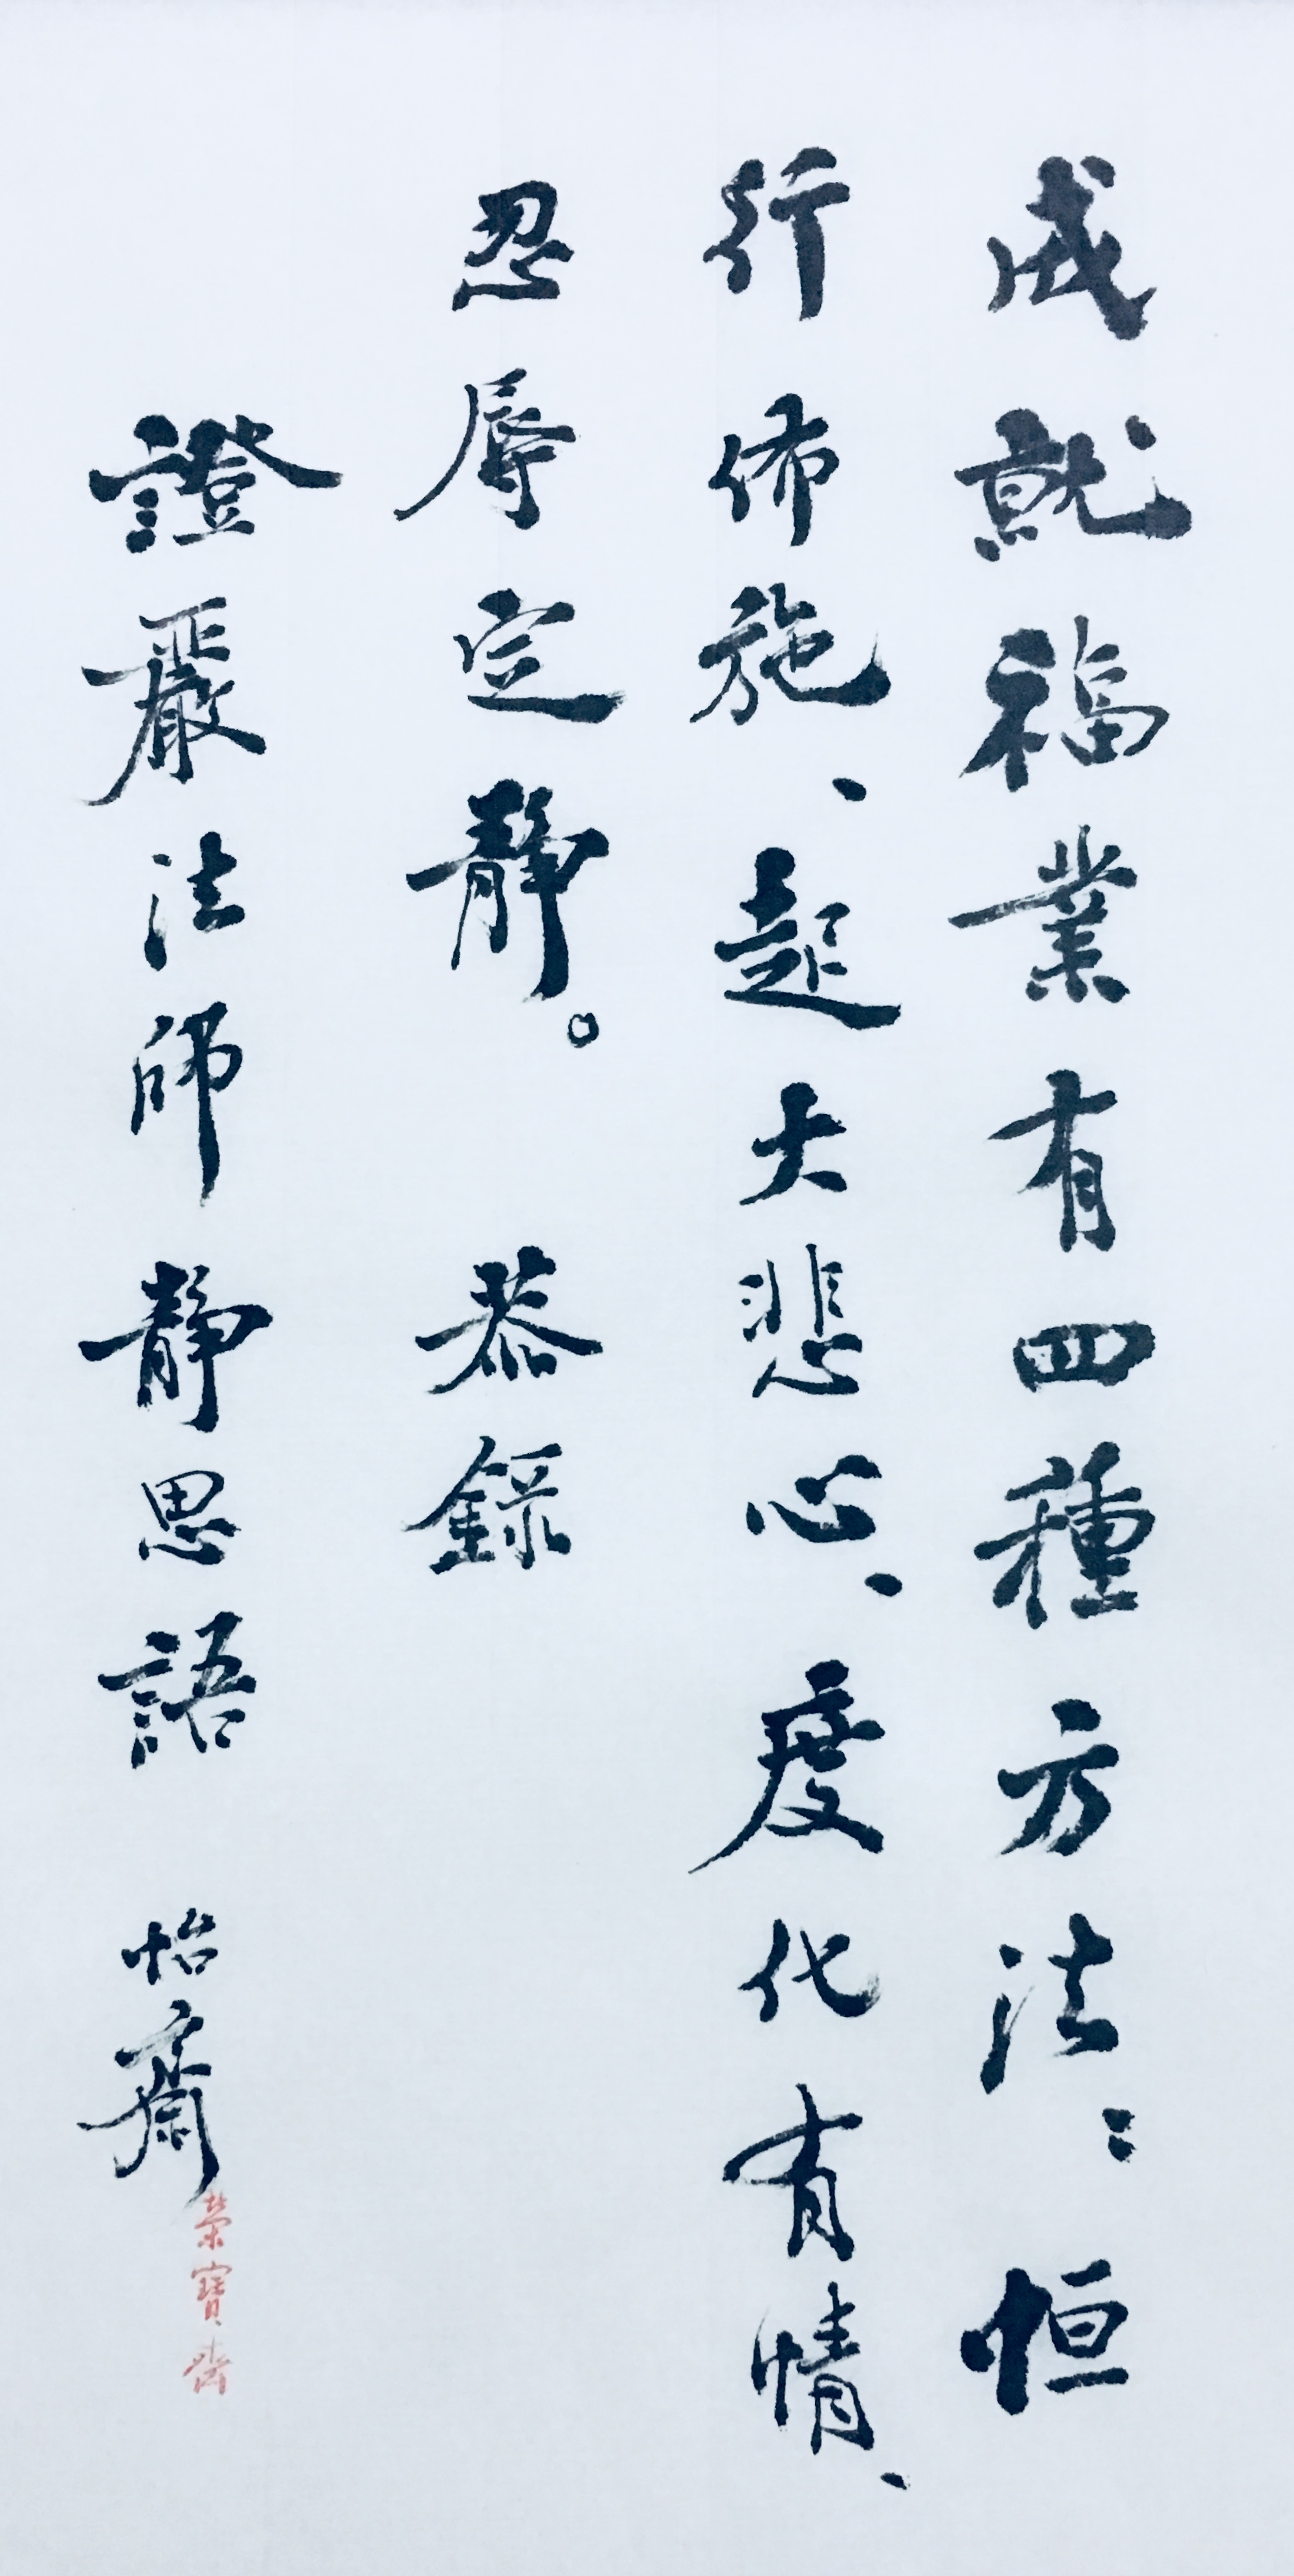 成就福業有四種方法：恒
行佈施、起大悲心、度化有情、
忍辱定靜。 恭錄
證嚴法師靜思語 怡齋
榮寶齋